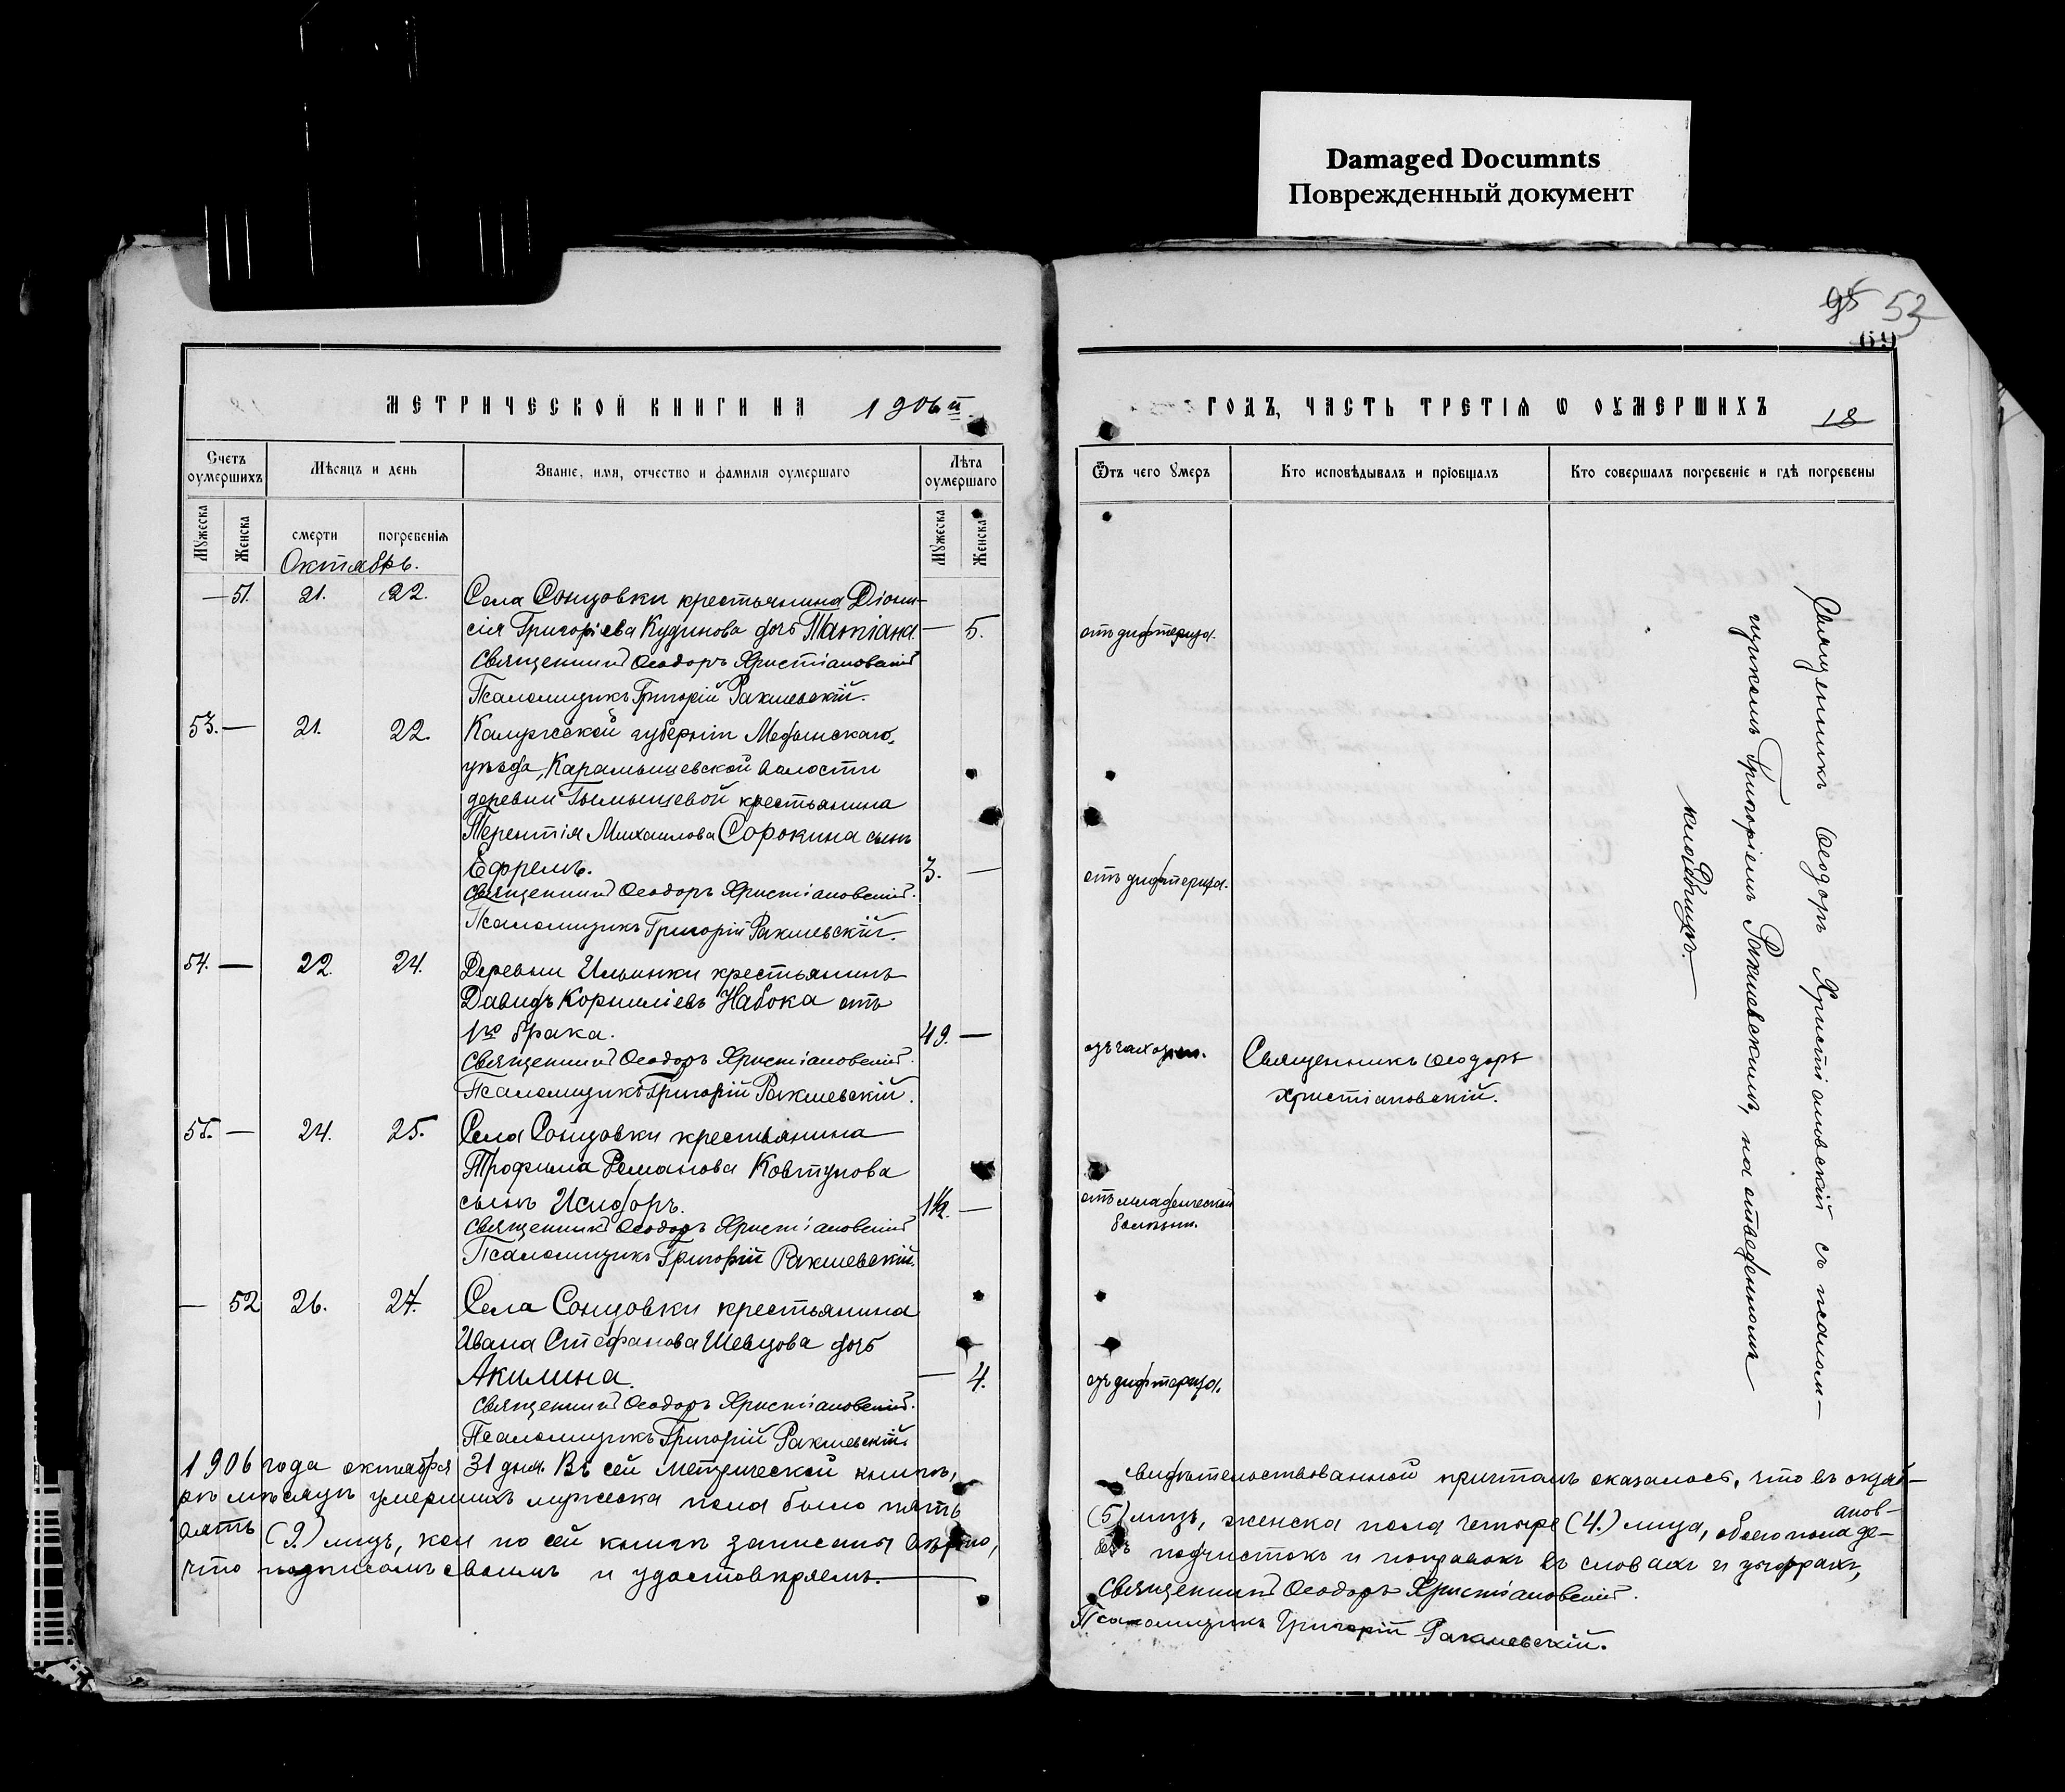 Damaged Documnts
Поврежденный документ
95 53
69
МЕТРИЧЕСКОЙ КНИГИ НА 1906 й
ГОДЪ, ЧАСТЬ ТРЕТІЯ Ѡ ОУМЕРШИХЪ 18
Счетъ оумершихъ
Мѣсяцъ и день
Званіе, имя, отчество и фамилія оумершаго
Лѣта оумершаго
Ѿтъ чего умеръ
Кто исповѣдывалъ и пріобщалъ
Кто совершалъ погребеніе и гдѣ погребены
Мужеска
Женска
смерти
погребенія
Мужеска
Женска
Октябрь.
— 51. 21. 22. Села Сонцовки крестьянина Діони-
сія Григоріева Кудинова дочь Татіана. — 5. отъ дифтерита.
Священникъ Ѳеодоръ Христіановскій
Псаломщикъ Григорій Ракшевскій.
53. — 21. 22. Калужской губерніи Медынскаго
уѣзда, Карамышевской волости
деревни крестьянина
Терентія Михаилова Сорокина сынъ
Ефремъ. 3. — отъ дифтерита.
Священникъ Ѳеодоръ Христіановскій.
Псаломщикъ Григорій Ракшевскій.
54. — 22. 24. Деревни Ильинки крестьянинъ
Давидъ Корниліевъ Набока отъ
1го брака. 49. — отъ чахотки. Священникъ Ѳеодоръ
Христіановскій.
Священникъ Ѳеодоръ Христіановскій.
Псаломщикъ Григорій Ракшевскій.
55. — 24. 25. Села Сонцовки крестьянина
Трофима Романова Ковтунова
сынъ Исидоръ. 1½. — отъ младенческой
болезни.
Священникъ Ѳеодоръ Христіановскій
Псаломщикъ Григорій Ракшевскій.
— 52 26. 27. Села Сонцовки крестьянина
Ивана Стефанова Шевцова дочь
Акилина. — 4. отъ дифтерита.
Священникъ Ѳеодоръ Христіановскій.
Псаломщикъ Григорій Ракшевскій.
Священникъ Ѳеодоръ Христіановскій съ псалом-
щикомъ Григоріемъ Ракшевскимъ, на отведенномъ
кладбищѣ.
1906 года октября 31 дня. Въ сей метрической книгѣ, свидѣтельствованной причтомъ оказалось, что въ октяб-
рѣ мѣсяцѣ умершихъ мужеска пола было пять (5) лицъ, женска пола четыре (4.) лица, обоего пола де-
вять (9.) лицъ, кои по сей книгѣ записаны вѣрно, безъ подчистокъ и поправокъ въ словахъ и цифрахъ,
что подписомъ своимъ и удостовѣряемъ.
Священникъ Ѳеодоръ Христіановскій.
Псаломщикъ Григорій Ракшевскій.